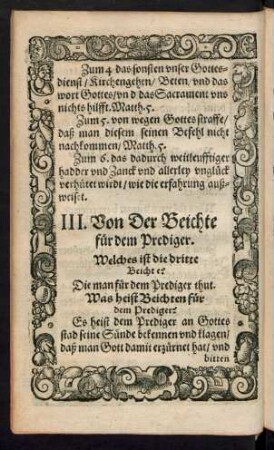 Zum 4 das sonsten vnser Gottes-
dienst / Kirchengehen / Beten / vnd das
wort Gottes / vnd das Sacrament vns
nichts hilfft. Matth. 5.
Zum 5. von wegen Gottes straffe /
daß man diesem seinen Befehl nicht
nachkommen / Matth. 5.
Zum 6. das dadurch weitleufftiger
hadder vnd Zanck vnd allerley vnglück
verhütet wirdt / wie die erfahrung auß-
weiset.
III. Von Der Beichte
für dem Prediger.
Welches ist die dritte
Beichte?
Die man für dem Prediger thut.
Was heist Beichten für
dem Prediger?
Es heist dem Prediger an Gottes
stad seine Sünde bekennen vnd klagen /
daß man Gott damit erzürnet hat / vnd
bitten